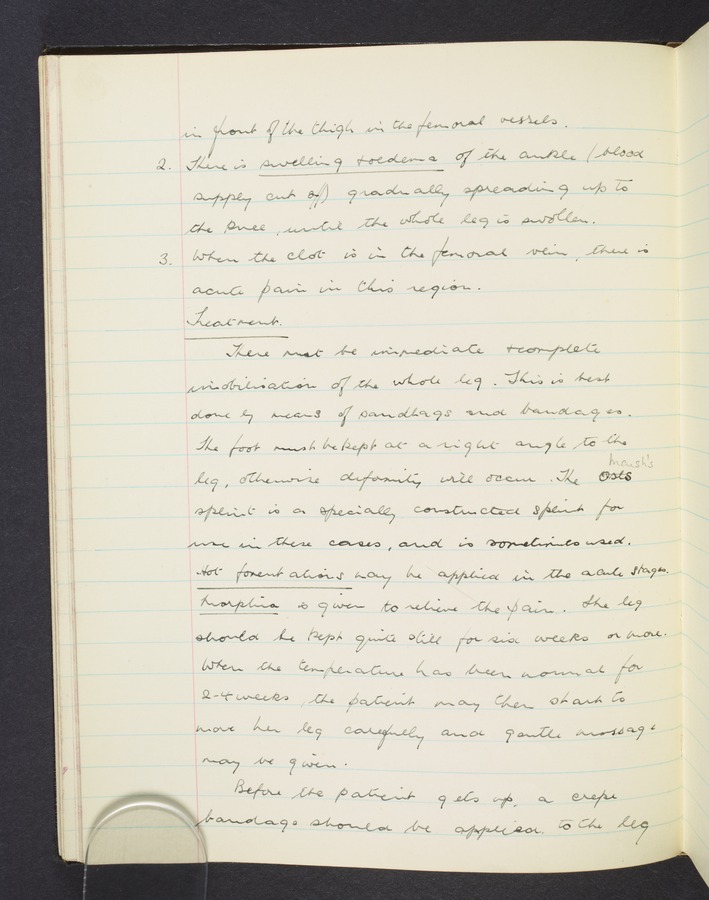 in front of the thigh in the femoral vessels.
2. There is swelling + oedema of the ankle (blood
supply cut off) gradually spreading up to
the knee, until the whole leg is swollen.
3. When the clot is in the femoral vein, there is
acute pain in this region.
Treatment.
There must be immediate + complete
imobilisation of the whole leg. This is best
done by means of sandbags and bandages.
The foot must be kept at a right angle to the
Marsh's
leg, otherwise deformity will occur. The
splint is a specially constructed splint for
use in these cases, and is sometimes used.
Hot fomentations may be applied in the acute stages.
Morphia is given to relieve the pain. The leg
should be kept quite still for six weeks or more.
When the temperature has been normal for
2-4 weeks, the patient may then start to
move her leg carefully and gentle massage
may be given.
Before the patient gets up, a crepe
bandage should be applied to the leg